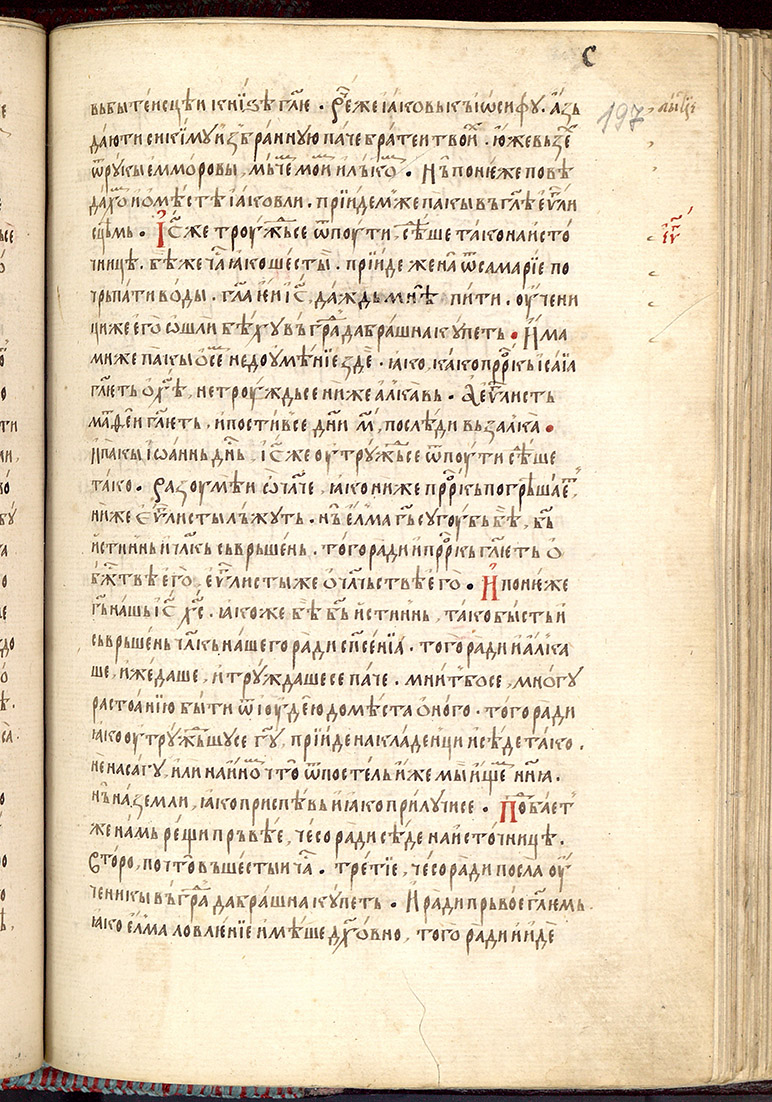 С
197
вьбытеисцѣи книѕѣ глю · Рече же іаковь къ іѡсифу · Азь
даю ти сикїму избранную паче братеи твои · юже взе
ѿ рукы емморовы, мьчемь мои и лѫкѡ · Нъ понеже повѣ
дахѡ и о мѣстѣ іаковли · прїидемже пакы въ глѣ еѵли
сцѣмь · Іс же троуждьсе ѿ поути · сѣдѣше тако на исто
чницѣ · бѣ же ча іако шесты · прїиде жена ѿ самарїе по
чрьпати воды · гла іеи іс, даждь мнѣ пити · оучени
ци же его ѡшли бѣху въ гра да брашна купеть · Има
ми же пакы ѡ се недоумѣнїе здѐ · іако, како прркь ісаіа
глеть ѡ хѣ, не троуждьсе ниже алкавь · А еѵлисть
матѳеи глеть, и постивсе днїи м, послѣди възалка ·
И пакы іѡаннь днь, іс же оутруждьсе ѿ поути сѣдѣше
тако · Разоумѣи ѡ чаче, іако ниже прркь погрѣшает,
ниже еѵлисты лъжуть · нъ елма гь сугоубь бѣ, бь
истиннь и члкь съврьшень · того ради и прркь глеть ѡ
бжтвѣ его, еѵлисты же ѡ члчьствѣ его · И понеже
гь нашь іс хс · іакоже бѣ бь истиннь, тако бысть и
съврьшень члкь нашего ради спсенїа · того ради и алка
ше, и жедаше, и труждашесе паче · мнит бо се, многу
растоанїю быти ѿ іоудею до мѣста оного · того ради
іако оутруждьшусе гу, прїиде на кладенци и сѣде тако ·
не на сагу, или на ино что ѿ постель иже мы ище ннїа ·
нъ на земли, іако приспѣвь и іако прилучисе · Побает
же намь рещи прьвѣе, чесо ради сѣде на источницѣ ·
Второ, почто въ шестыи ча · третїе, чесо ради посла оу
ченикы въ гра да брашна купеть · И ради прьвое глемь
іако елма ловленїе имѣше дховно, того ради и идѐ